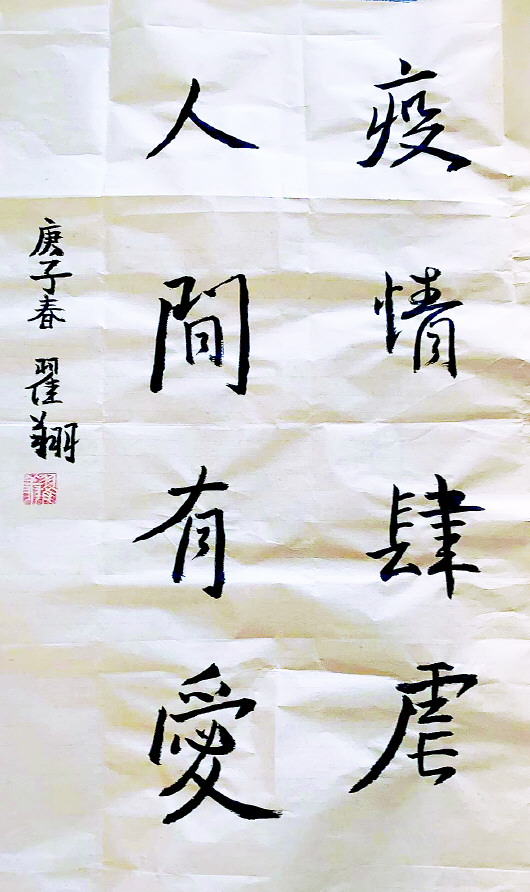 疫情肆虐
人間有愛
庚子春 翟翔